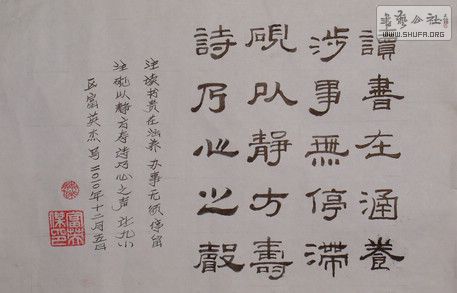 讀書在涵養
涉事無停滯
硯以靜方壽
詩乃心之聲
读书贵在涵养 办事无须停留
砚以静方寿诗乃心之声
英杰写二〇一〇年十二月五日
書藝公社
WWW.SHUFA.ORG